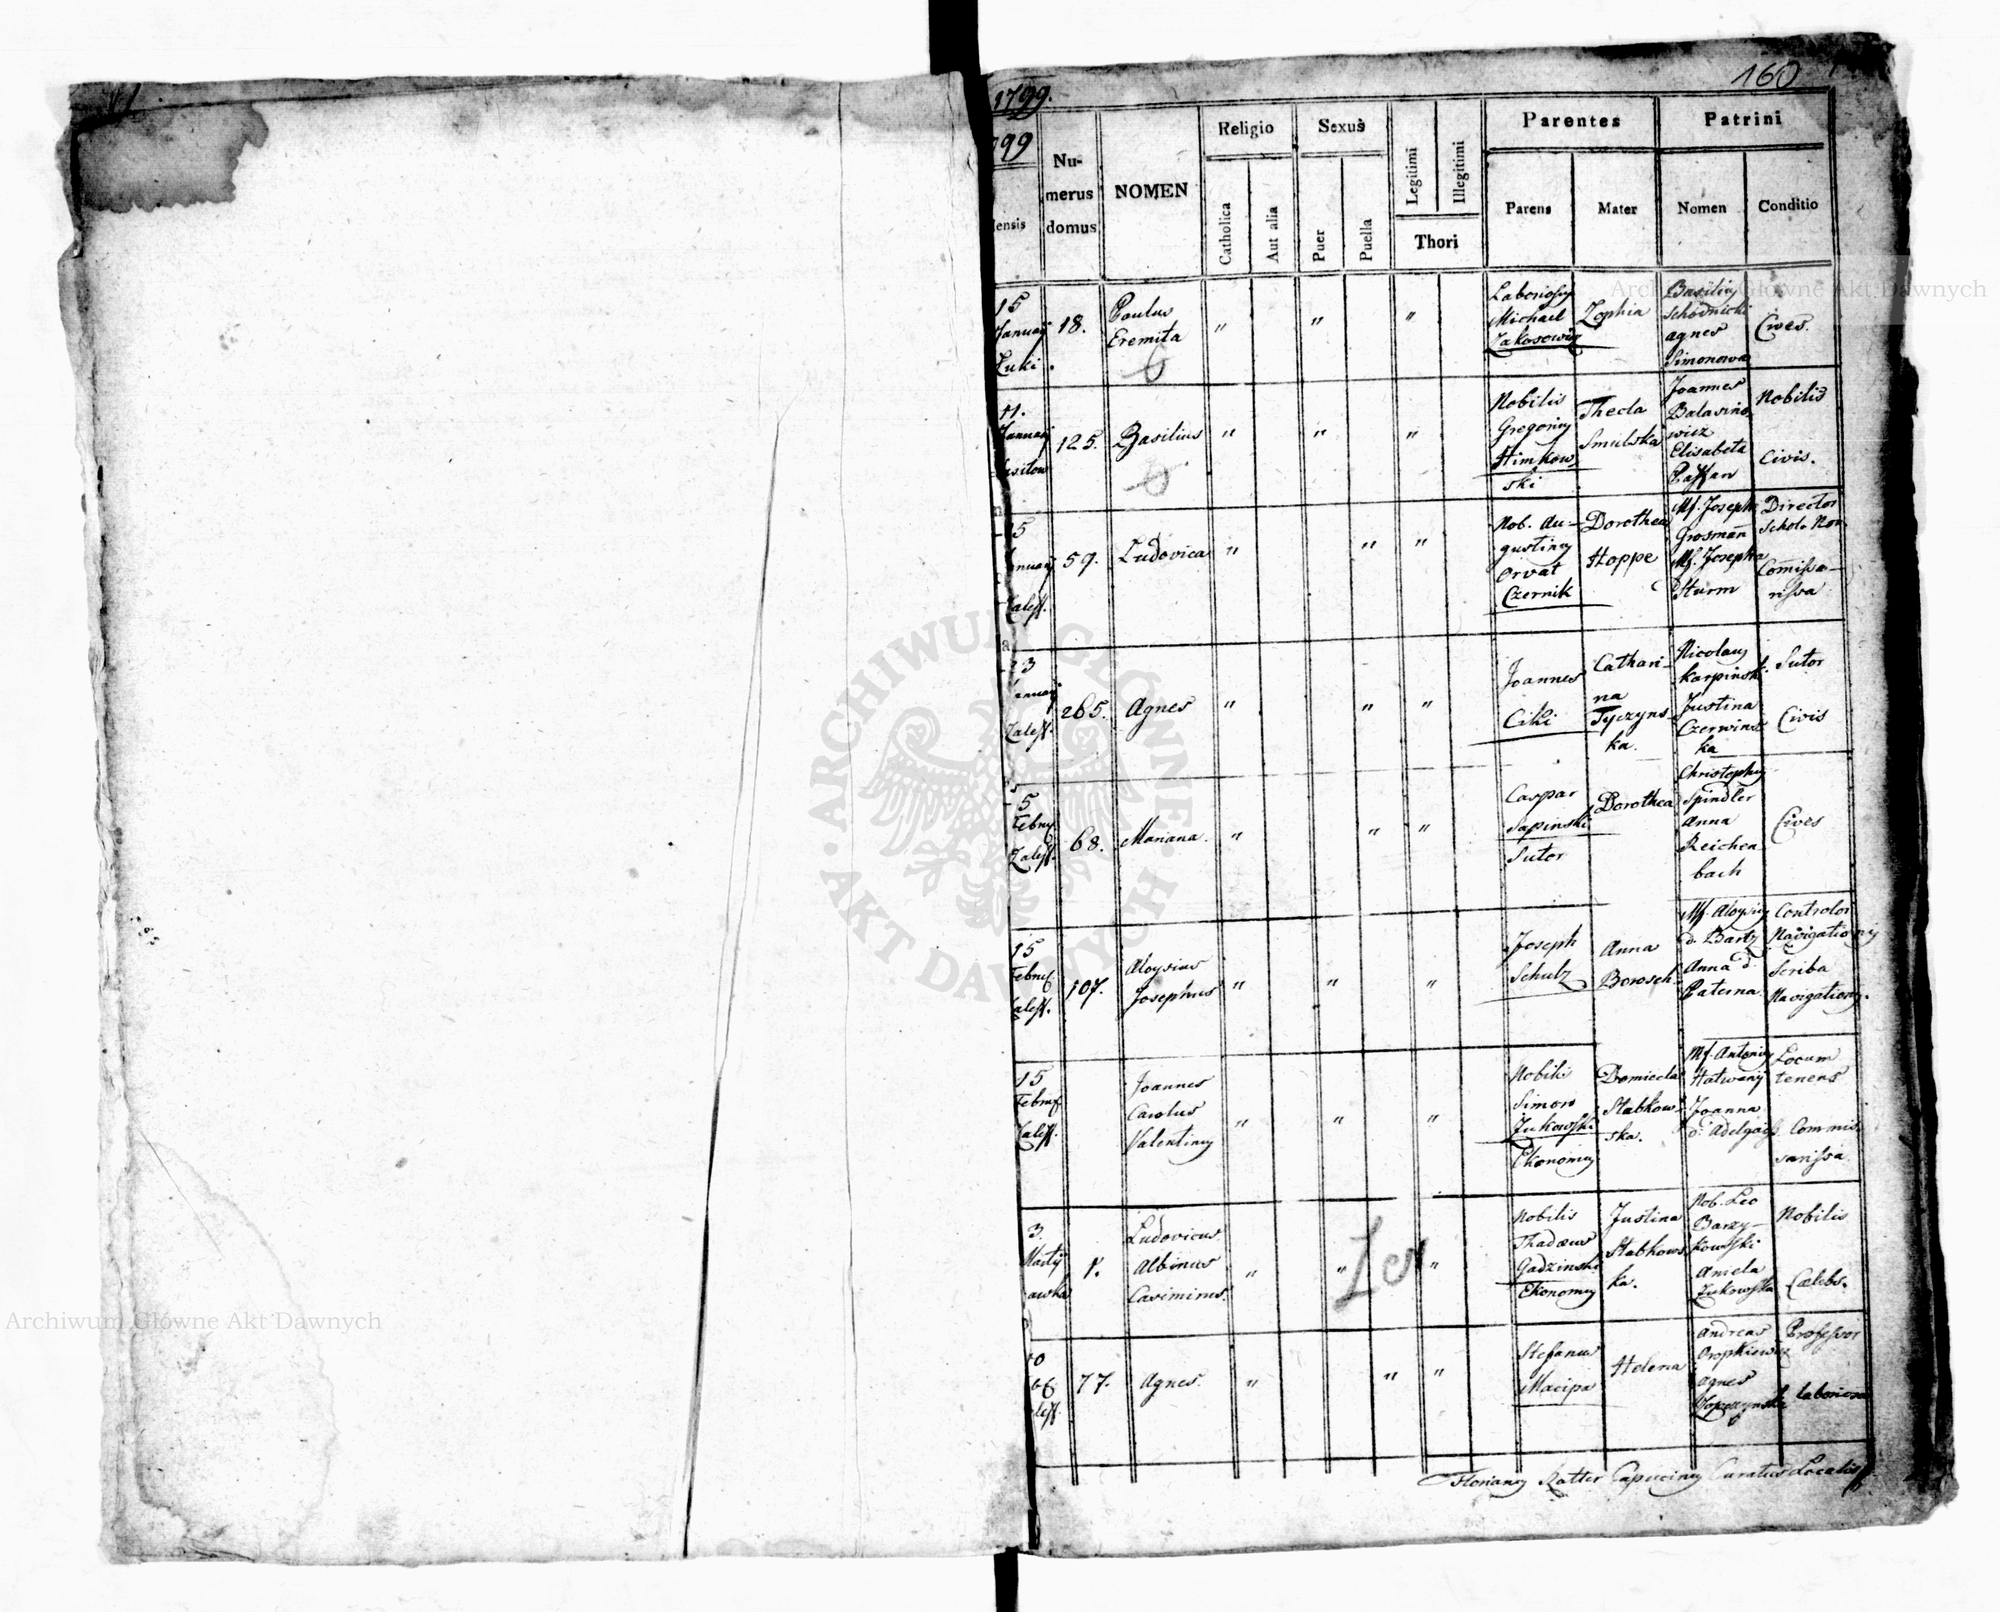 160
1799.
799
ensis
Numerus domus
NOMEN
Religio
Catholica
Aut alia
Sexus
Puer
Puella
Legitimi
Illegitimi
Thori
Parentes
Parens
Mater
Patrini
Nomen
Conditio
15
Januarij
Zuki
18.
Paulus
Eremita
"
"
"
Laboriosus
Michael
Zakosowicz
Zophia
Basilius
Schodnicki
Agnes
Simonowa
Cives.
11.
Januarij
125.
Basilius
"
"
"
Nobilis
Gregorius
Himkow
ski
Thecla
Smulska
Joannes
Balasino
wicz
Elisabeta
Nobilis
Civis.
15
nuarij
Zaleß.
59.
Ludovica
"
"
"
Nob. Au-
gustinus
Orvat
Czernik
Dorothea
Hoppe
Joseph
Grosmañ
Josepha
Sturm
Director
Schole Nor.
Comissa-
rissa
23
Januarij
Zaleß.
265.
Agnes
"
"
"
Joannes
Ciki
Cathari-
na
Tyczyns-
ka.
Nicolaus
Karpinski
Justina
Czerwins
ka
Sutor
Civis
5
Febru
Zaleß.
68.
Mariana.
"
"
"
Caspar
Sapinski
Sutor
Dorothea
Christophus
Spindler
Anna
Reichen
bach
Cives
15
Febru
Zaleß.
107.
Aloysius
Josephus
"
"
"
Joseph
Schulz
Anna
Borosch.
Aloysius
d. Bartz
Anna d.
Paterna
Controlor
Navigationis
Scriba
Navigationis.
15
Febru
Zaleß.
Joannes
Carolus
Valentinus
"
"
"
Nobilis
Simon
Zukowski
Ekonomus
Domicela
Stabkow-
ska.
Antonius
Joanna
Locum
tenens
Commis
sarissa
3.
Martij
1.
Ludovicus
Albinus
Casimirus.
"
"
"
Nobilis
Thadæus
Gadzinski
Ekonomus
Justina
Stabkows
ka.
Nob. Leo
Barzy-
kowski
Aniela
Zukowska
Nobilis
Cælebs.
77.
Agnes.
"
"
"
Stefanus
Macipa
Helena
Andreas
Oropkiewicz
Agnes
Professor
laboriosa
Florianus Ratter Capucinus Curatus Localis
ARCHIWUM GŁÓWNE
AKT DAWNYCH
Archiwum Główne Akt Dawnych
Archiwum Główne Akt Dawnych